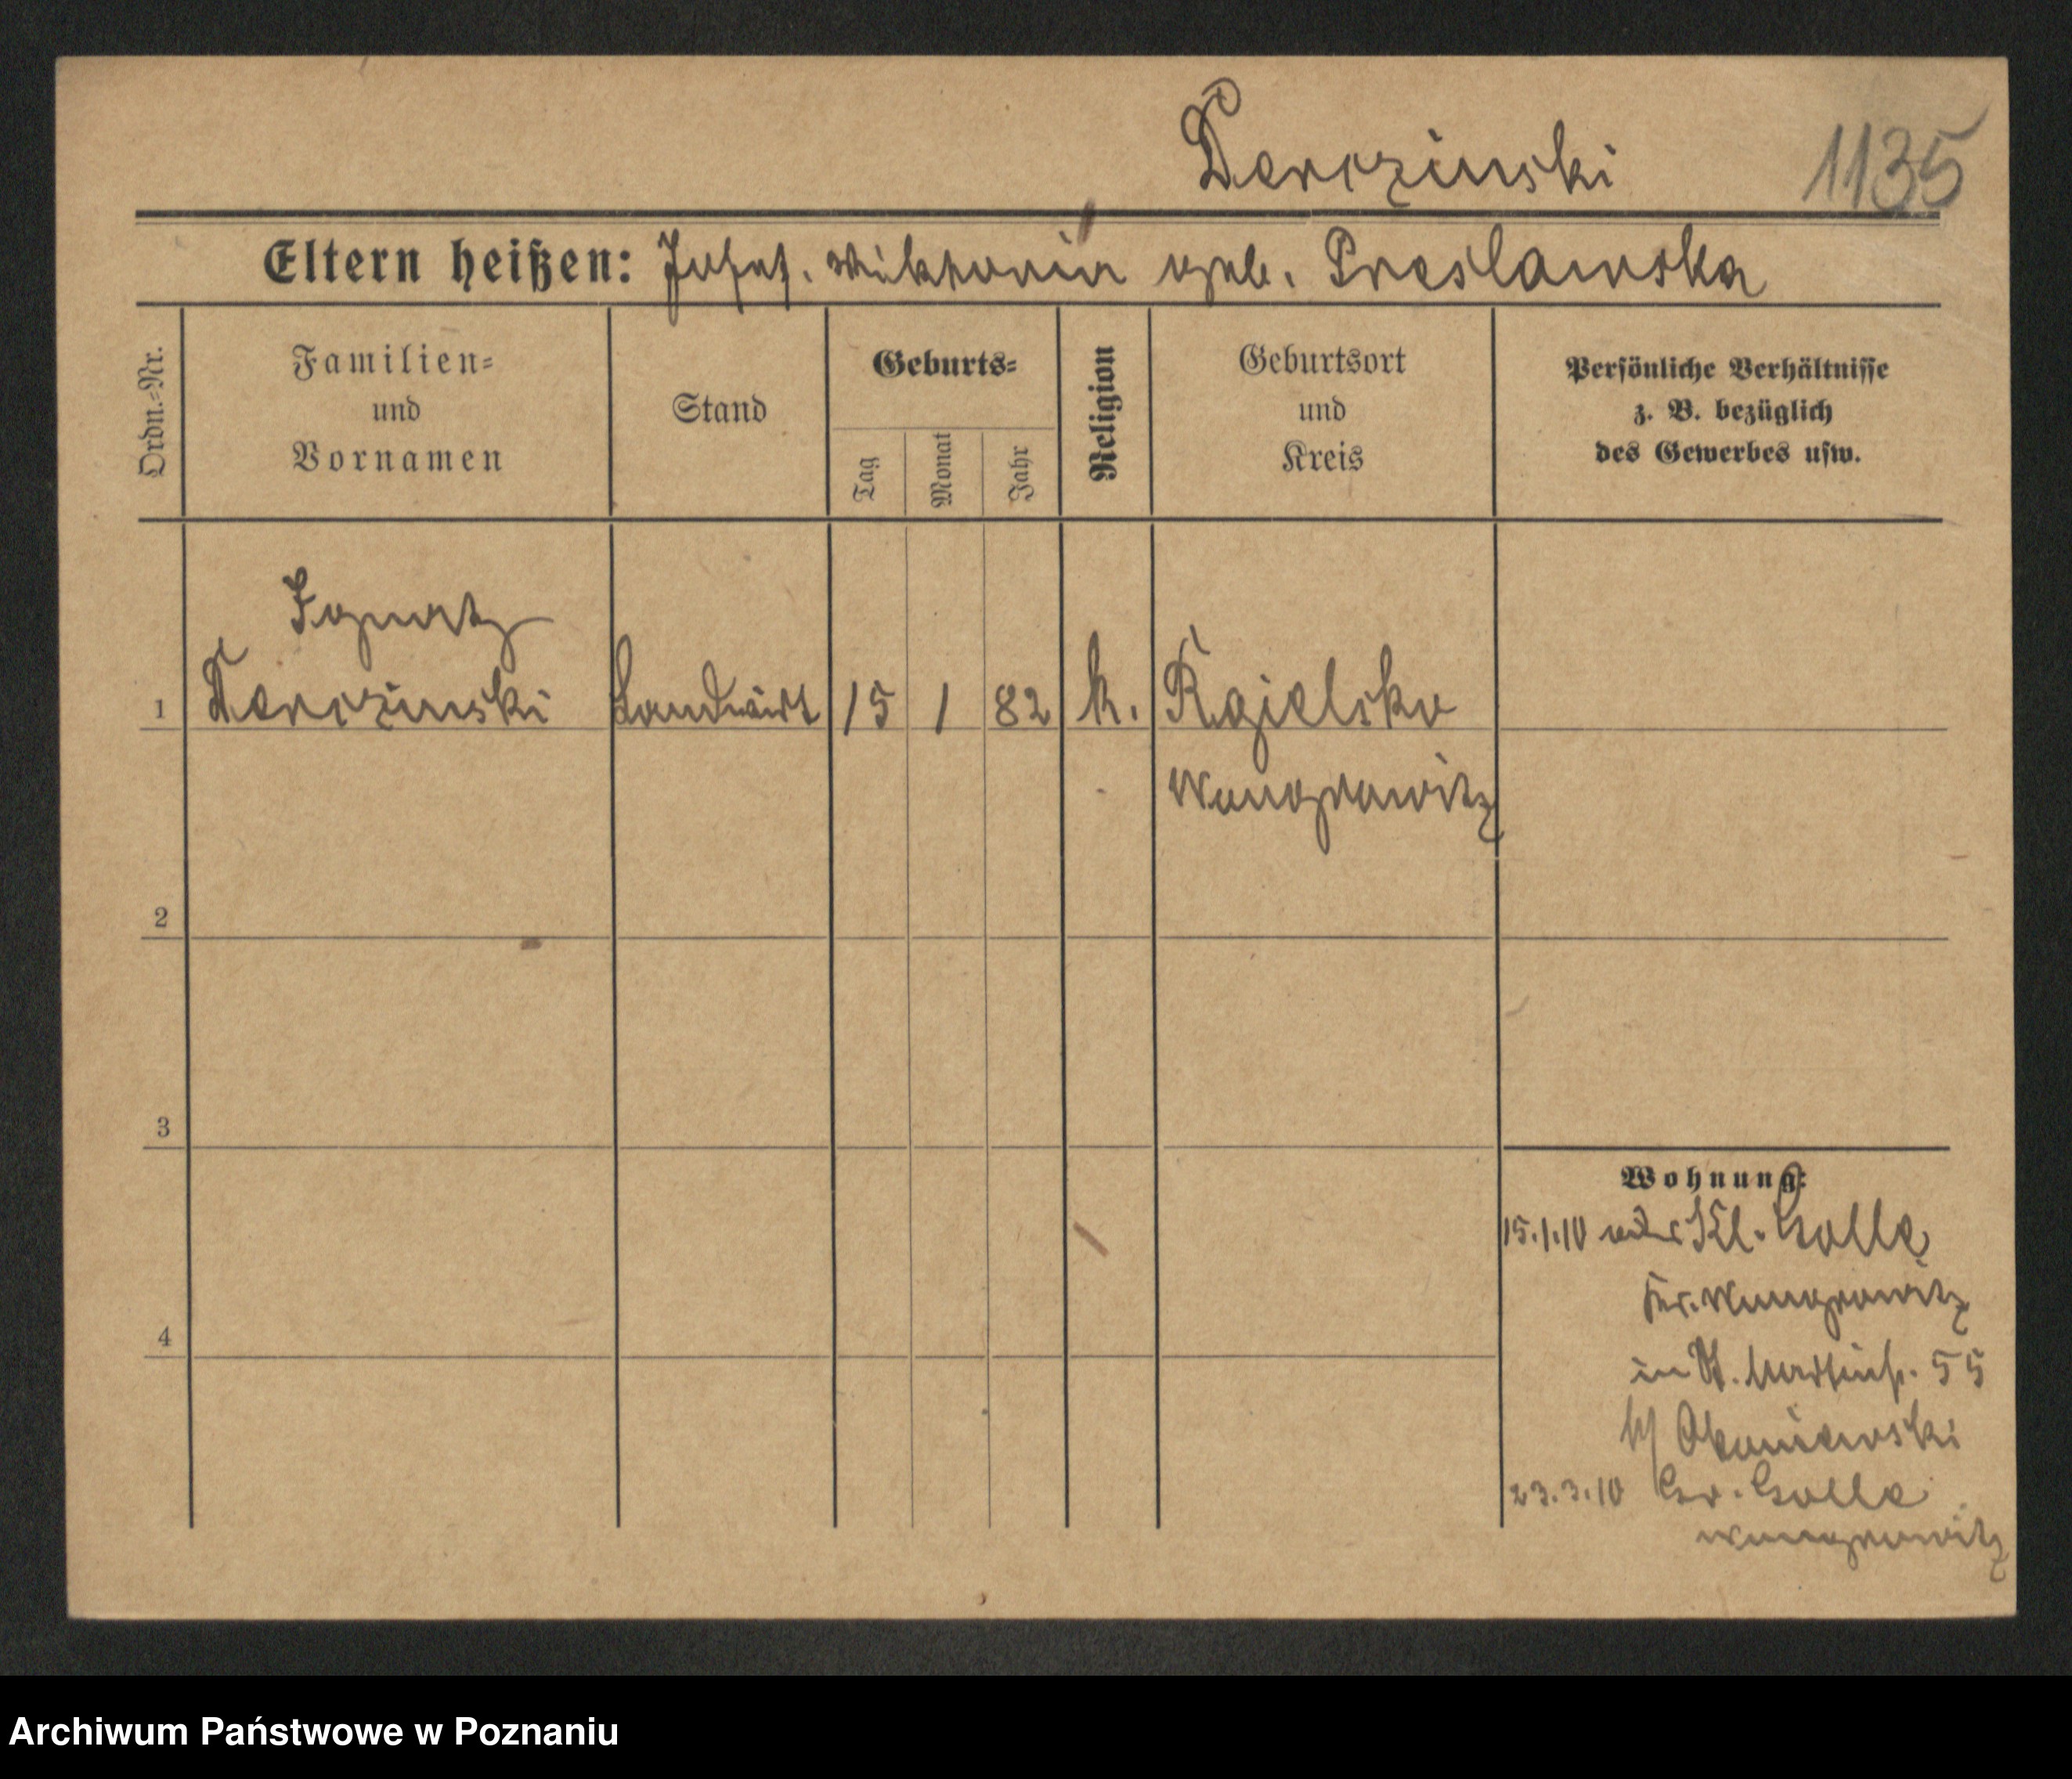 Derczinski
1135
Eltern heißen: Josef. Wiktoria geb. Preslawska
Ordn.=Nr.
Familien=
und
Vornamen
Stand
Geburts=
Tag
Monat
Jahr
Religion
Geburtsort
und
Kreis
Persönliche Verhältnisse
z. B. bezüglich
des Gewerbes usw.
Ignatz
1 Derczinski Landwirt 15 1 82 k. Rgielsko
Wongrowitz
2
3
4
Wohnung:
15.1.10 Kl. Golle
Kr. Wongrowitz
in St. Martinstr. 55
23.3.10 Gr. Golle
Wongrowitz
Archiwum Państwowe w Poznaniu